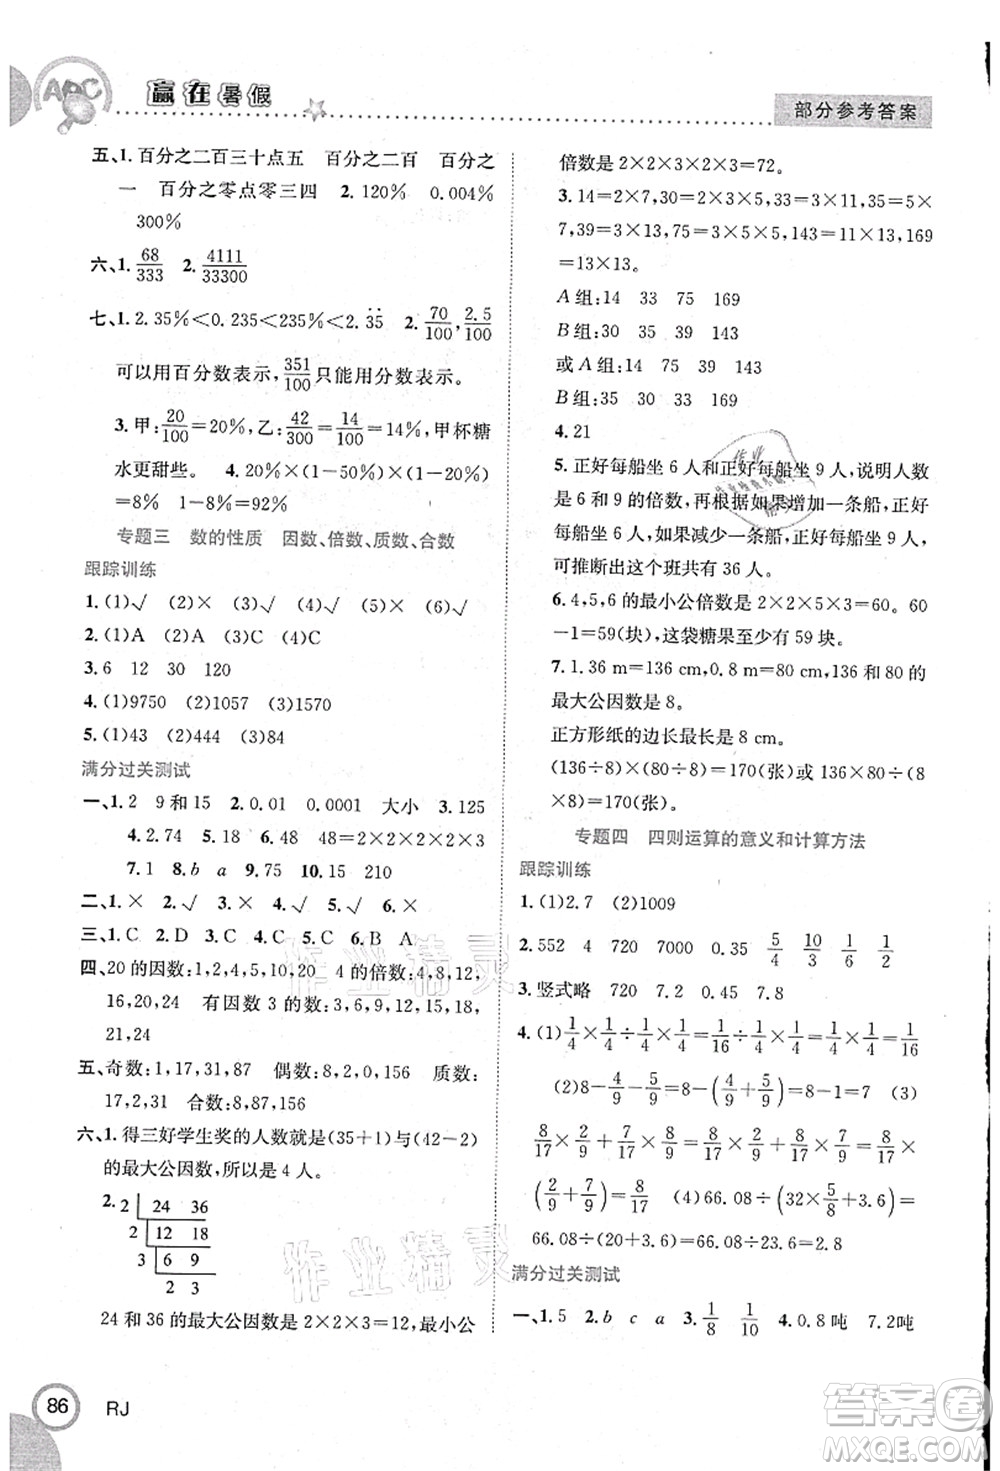 ABC
赢在暑假
部分参考答案
五、1.百分之二百三十点五 百分之二百 百分之
一 百分之零点零三四 2.120% 0.004%
300%
六、1.68/333 2.4111/33300
七、1.2.35%<0.235<235%<2.3̇5̇ 2.70/100,2.5/100
可以用百分数表示,351/100只能用分数表示。
3.甲:20/100=20%,乙:42/300=14/100=14%,甲杯糖
水更甜些。 4.20%×(1-50%)×(1-20%)
=8% 1-8%=92%
专题三 数的性质 因数、倍数、质数、合数
跟踪训练
1.(1)√ (2)× (3)√ (4)× (5)√ (6)√
2.(1)A (2)A (3)C
3.6 12 30 120
4.(1)9750 (2)1057 (3)570
5.(1)43 (2)444 (3)84
满分过关测试
一、1.2 9和15 2.0.01 0.0001 大小 3.125
4.2.74 5.18 6.48 48=2×2×2×2×3
7.1 8.b a 9.75 10.15 210
二、1.× 2.√ 3.√ 4.√ 5.× 6.×
三、1.C 2.D 3.C 4.C 5.C 6.B A
四、20的因数:1,2,4,5,10,20 4的倍数:4,8,12,
16,20,24 有因数3的数:3,6,9,12,15,18,
21,24
五、奇数:1,17,31,87 偶数:2,8,156 质数:
17,2,31 合数:8,87,156
六、1.得三好学生奖的人数就是(35+1)与(42-2)
的最大公因数,所以是4人。
2. 2 24 36
2 12 18
3 6 9
2 3
24和36的最大公因数是2×2×3=12,最小公
倍数是2×2×3×2×3=72。
3.14=2×7,30=2×3×5,33=3×11,35=5×
7,39=3×13,75=3×5×5,143=11×13,169
=13×13。
A组:14 33 75 169
B组:30 35 39 143
或A组:14 75 39 143
B组:35 30 33 169
4.21
5.正好每船坐6人和正好每船坐9人,说明人数
是6和9的倍数,再根据如果增加一条船,正好
每船坐6人,如果减少一条船,正好每船坐9人,
可推断出这个班共有36人。
6.4,5,6的最小公倍数是2×2×3×5=60。60
-1=59(块),这袋糖果至少有59块。
7.1.36 m=136 cm,0.8 m=80 cm,136和80的
最大公因数是8。
正方形纸的边长最长是8 cm。
(136÷8)×(80÷8)=170(张)或136×80÷(8
×8)=170(张)。
专题四 四则运算的意义和计算方法
跟踪训练
1.(1)2.7 (2)1009
2.552 4 720 7000 0.35 5/4 10/3 1/2 1/2
3.竖式略 720 7.2 0.45 7.8
4.(1)1/4×1/4÷1/4×1/4=1/16÷1/4×1/4=1/4×1/4=1/16
(2)8-4/9-5/9=8-(4/9+5/9)=8-1=7 (3)
8/17×2/9+7/9×8/17=2/9×8/17+7/9×8/17=8/17×
(2/9+7/9)=8/17 (4)66.08÷(32×5/8+3.6)=
66.08÷(20+3.6)=66.08÷23.6=2.8
满分过关测试
一、1.5 2.b c a 3.1/8 1/10 4.0.8吨 7.2吨
86
RJ
作业精灵
作业精灵
答案圈
MXQE.COM